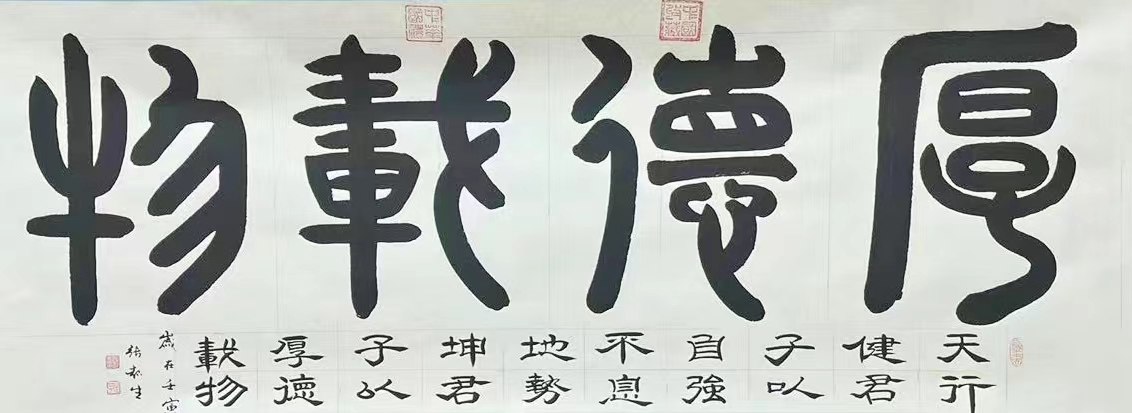 厚德載物
天行
健君
子以
自強
不息
地勢
坤君
子以
厚德
載物
歲在壬寅